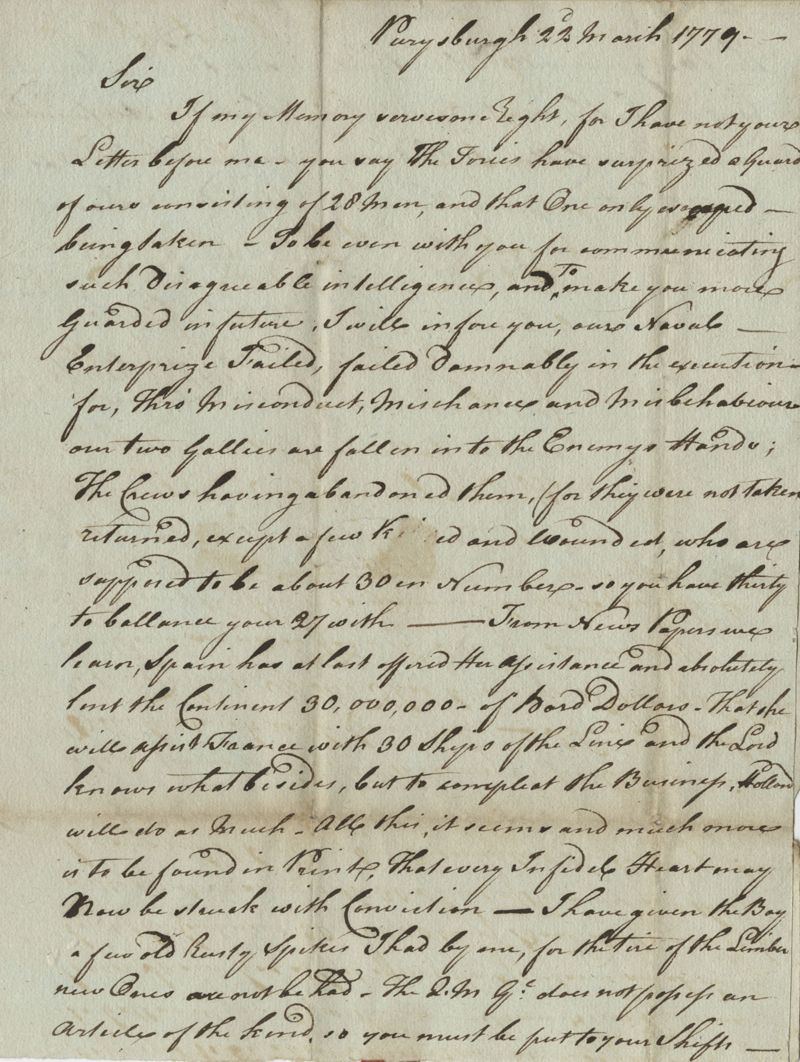 Purysburgh 22d March 1779 -
Sir
If my Memory serves me Right, for I have not your
Letter before me - you say The Tories have surprized a Guard
of ours consisting of 28 Men, and that One only escaped -
being taken - To be even with you for communicating
such Disagreable intelligence, and To make you more
Guarded in future, I will infore you, our Naval -
Enterprize Failed, failed Damnably in the execution -
for, Thro Misconduct, Mischance and Misbehaviour
our two Gallies are fallen into the Enemys Hands;
The Crews having abandoned them, (for they were not taken
returned, except a few Ki ed and Wounded, who are
supposed to be about 30 in Number - so you have thirty
to ballance your 27 with — From News Papers we
learn, Spain has at last offered Her assistance and absolutely
lent the Continent 30,000,000 - of Hard Dollars - That she
will assist France with 30 Ships of the Line and the Lord
knows what besides, but to compleat the Business, Holland
will do as Much - All this, it seems and much more
is to be found in Print, That every Infidel Heart may
Now be struck with Conviction — I have given the Boy
a few old Rusty Spikes I had by me, for the tire of the Limber
new Ones are not be had - The Q.M Gl. does not possess an
Article of the kind, so you must be put to your Shifts —